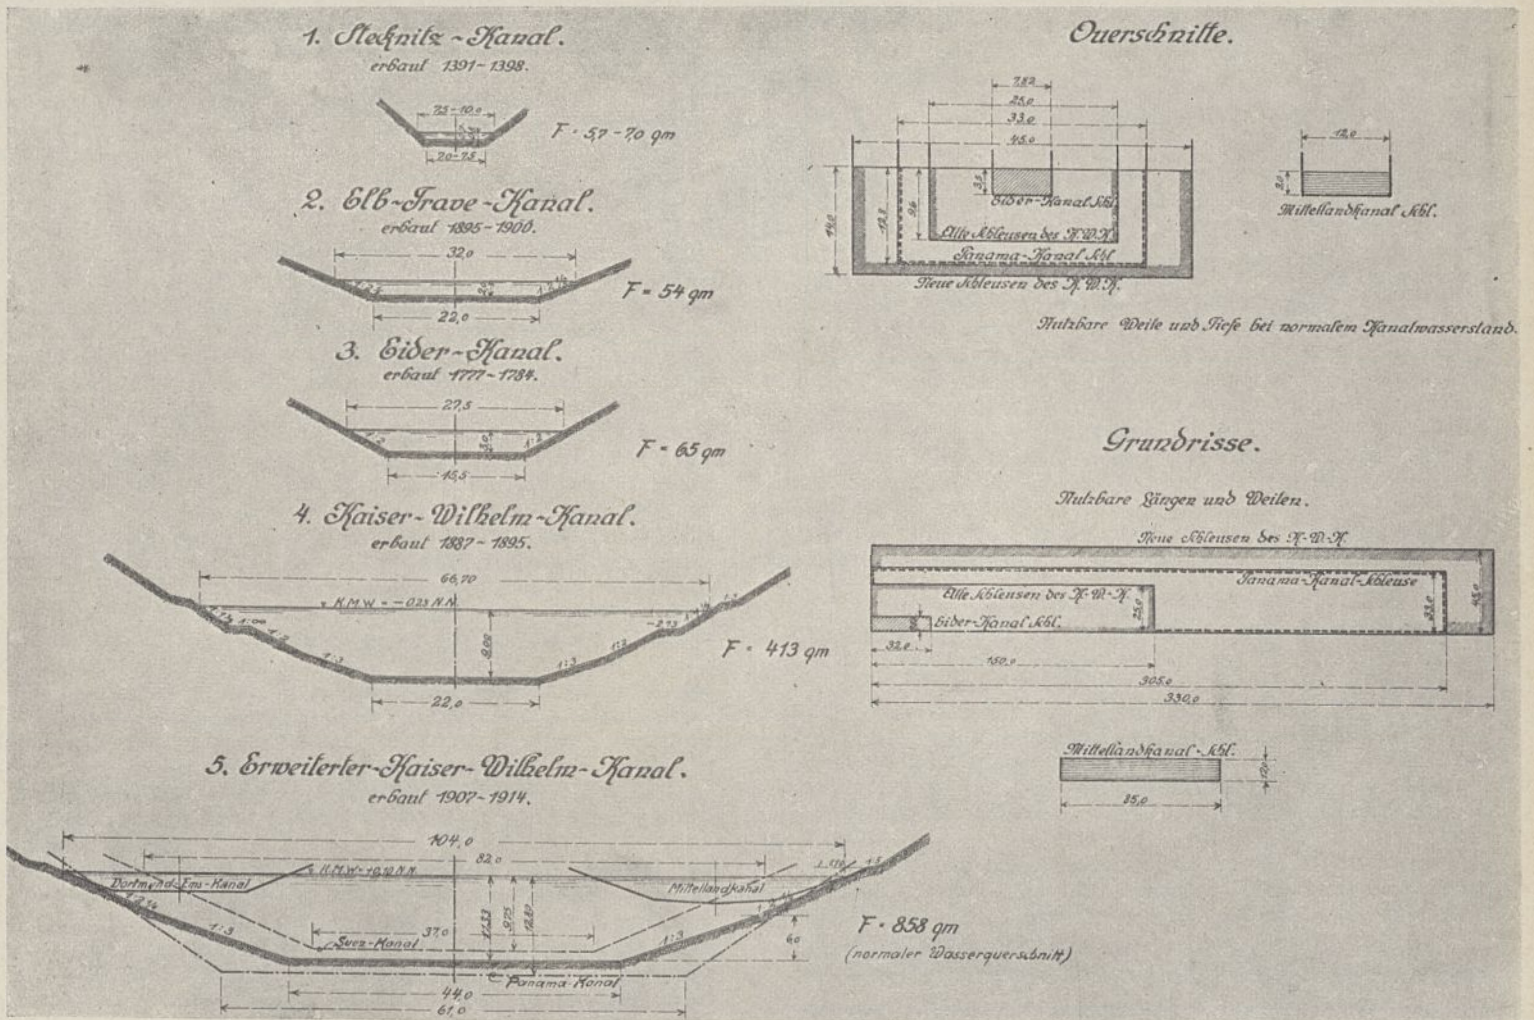 1. Stecknitz-Kanal.
erbaut 1391-1398.
7,5-10,0
F = 5,7-7,0 qm
7,0-7,5
2. Elb-Trave-Kanal.
erbaut 1895-1900.
32,0
2,0
F = 54 qm
22,0
3. Eider-Kanal.
erbaut 1777-1784.
27,5
1:2
3,0
1:2
F = 65 qm
15,5
4. Kaiser-Wilhelm-Kanal.
erbaut 1887-1895.
66,70
K.M.W = -0,23 N.N.
1:2
1:3
9,00
1:3
1:2
-2,73
F = 413 qm
22,0
5. Erweiterter-Kaiser-Wilhelm-Kanal.
erbaut 1907-1914.
104,0
82,0
K.M.W = +0,10 N.N.
Dortmund-Ems-Kanal
Mittellandkanal
1:3
37,0
11,33
9,75
12,80
1:3
6,0
Suez-Kanal
F = 858 qm
(normaler Wasserquerschnitt)
Panama-Kanal
44,0
61,0
Querschnitte.
7,82
25,0
33,0
45,0
14,0
12,3
9,6
3,5
Eider-Kanal Schl.
Alte Schleusen des K.W.K.
Panama-Kanal Schl
Neue Schleusen des K.W.K.
12,0
3,0
Mittellandkanal Schl.
Nutzbare Weite und Tiefe bei normalem Kanalwasserstand.
Grundrisse.
Nutzbare Längen und Weiten.
Neue Schleusen des K-W-K.
Panama-Kanal-Schleuse
Alte Schleusen des K-W-K.
25,0
33,0
45,0
Eider-Kanal Schl.
32,0
150,0
305,0
330,0
Mittellandkanal-Schl.
12,0
85,0